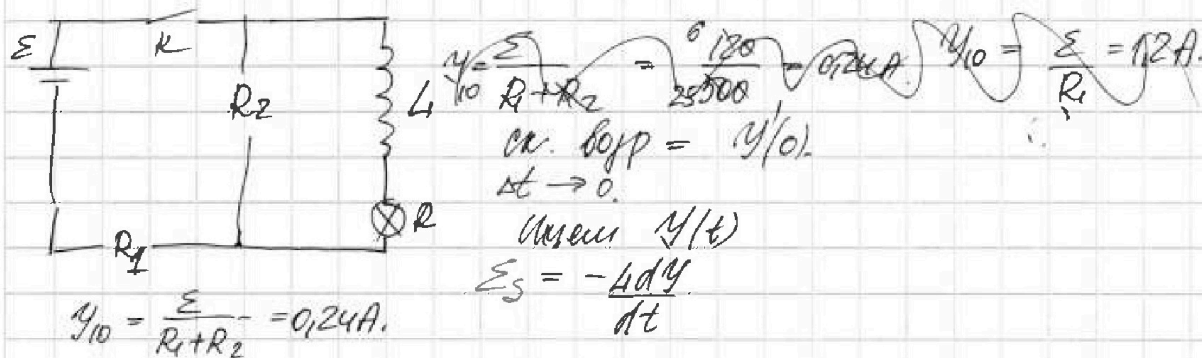 ε K R2 L R R1
У10 = ε / (R1 + R2) = 120 / 500 = 0,24А. У10 = ε / R1 = 1,2А.
ск. возр = У'(0).
Δt → 0.
Ищем У(t)
εs = - LdУ / dt
У10 = ε / (R1 + R2) = 0,24А.